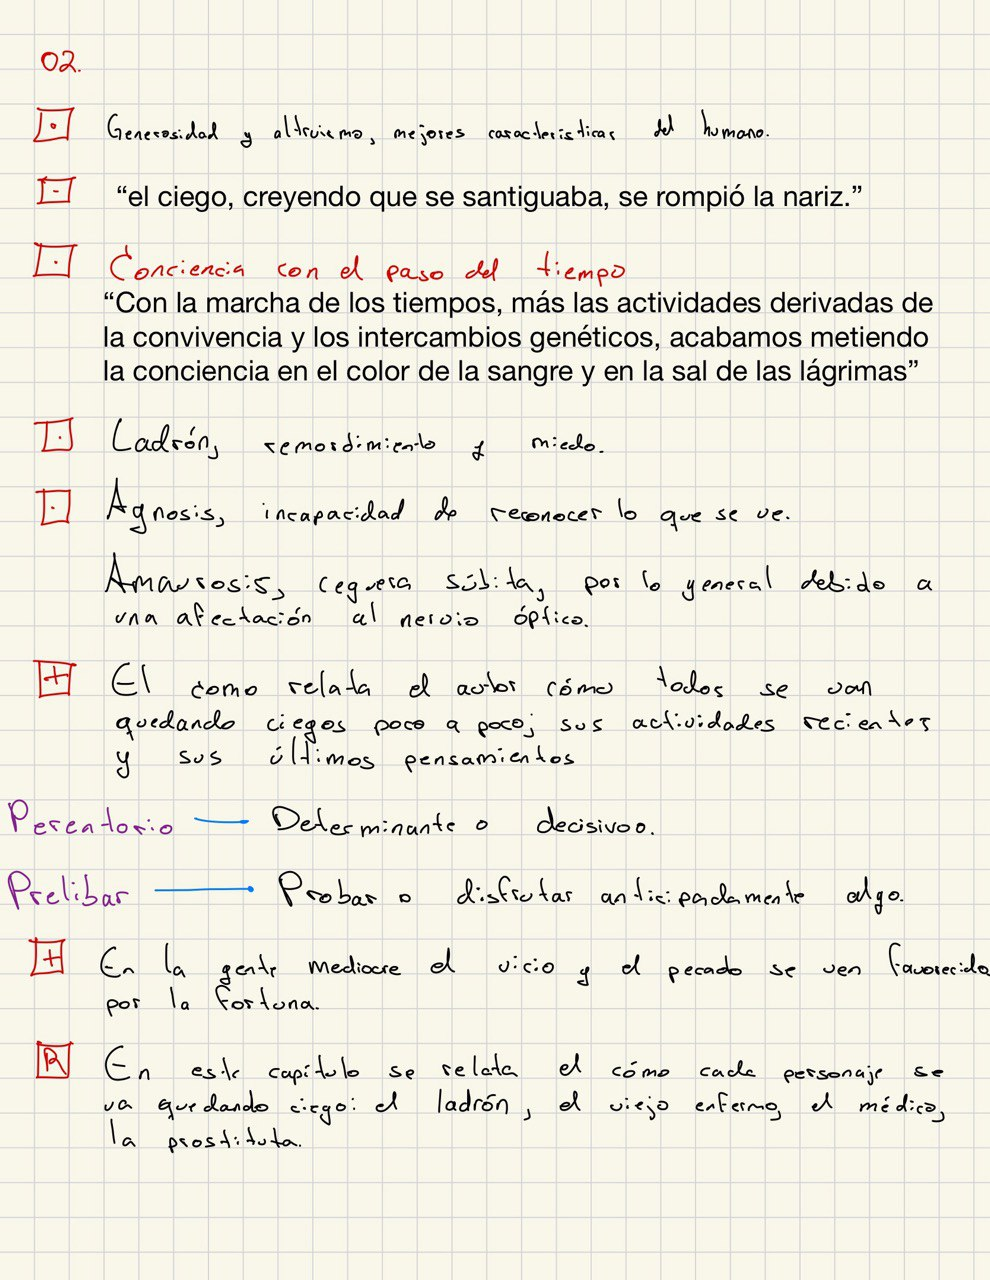 02.
Generosidad y altruismo, mejores características del humano.
“el ciego, creyendo que se santiguaba, se rompió la nariz.”
Conciencia con el paso del tiempo
“Con la marcha de los tiempos, más las actividades derivadas de
la convivencia y los intercambios genéticos, acabamos metiendo
la conciencia en el color de la sangre y en la sal de las lágrimas”
Ladrón, remordimiento y miedo.
Agnosis, incapacidad de reconocer lo que se ve.
Amaurosis, ceguera súbita, por lo general debido a
una afectación al nervio óptico.
+ El como relata el autor cómo todos se van
quedando ciegos poco a poco; sus actividades recientes
y sus últimos pensamientos
Perentorio — Determinante o decisivoo.
Prelibar — Probar o disfrutar anticipadamente algo.
+ En la gente mediocre el vicio y el pecado se ven favorecido
por la fortuna.
R En este capítulo se relata el cómo cada personaje se
va quedando ciego: el ladrón, el viejo enfermo, el médico,
la prostituta.